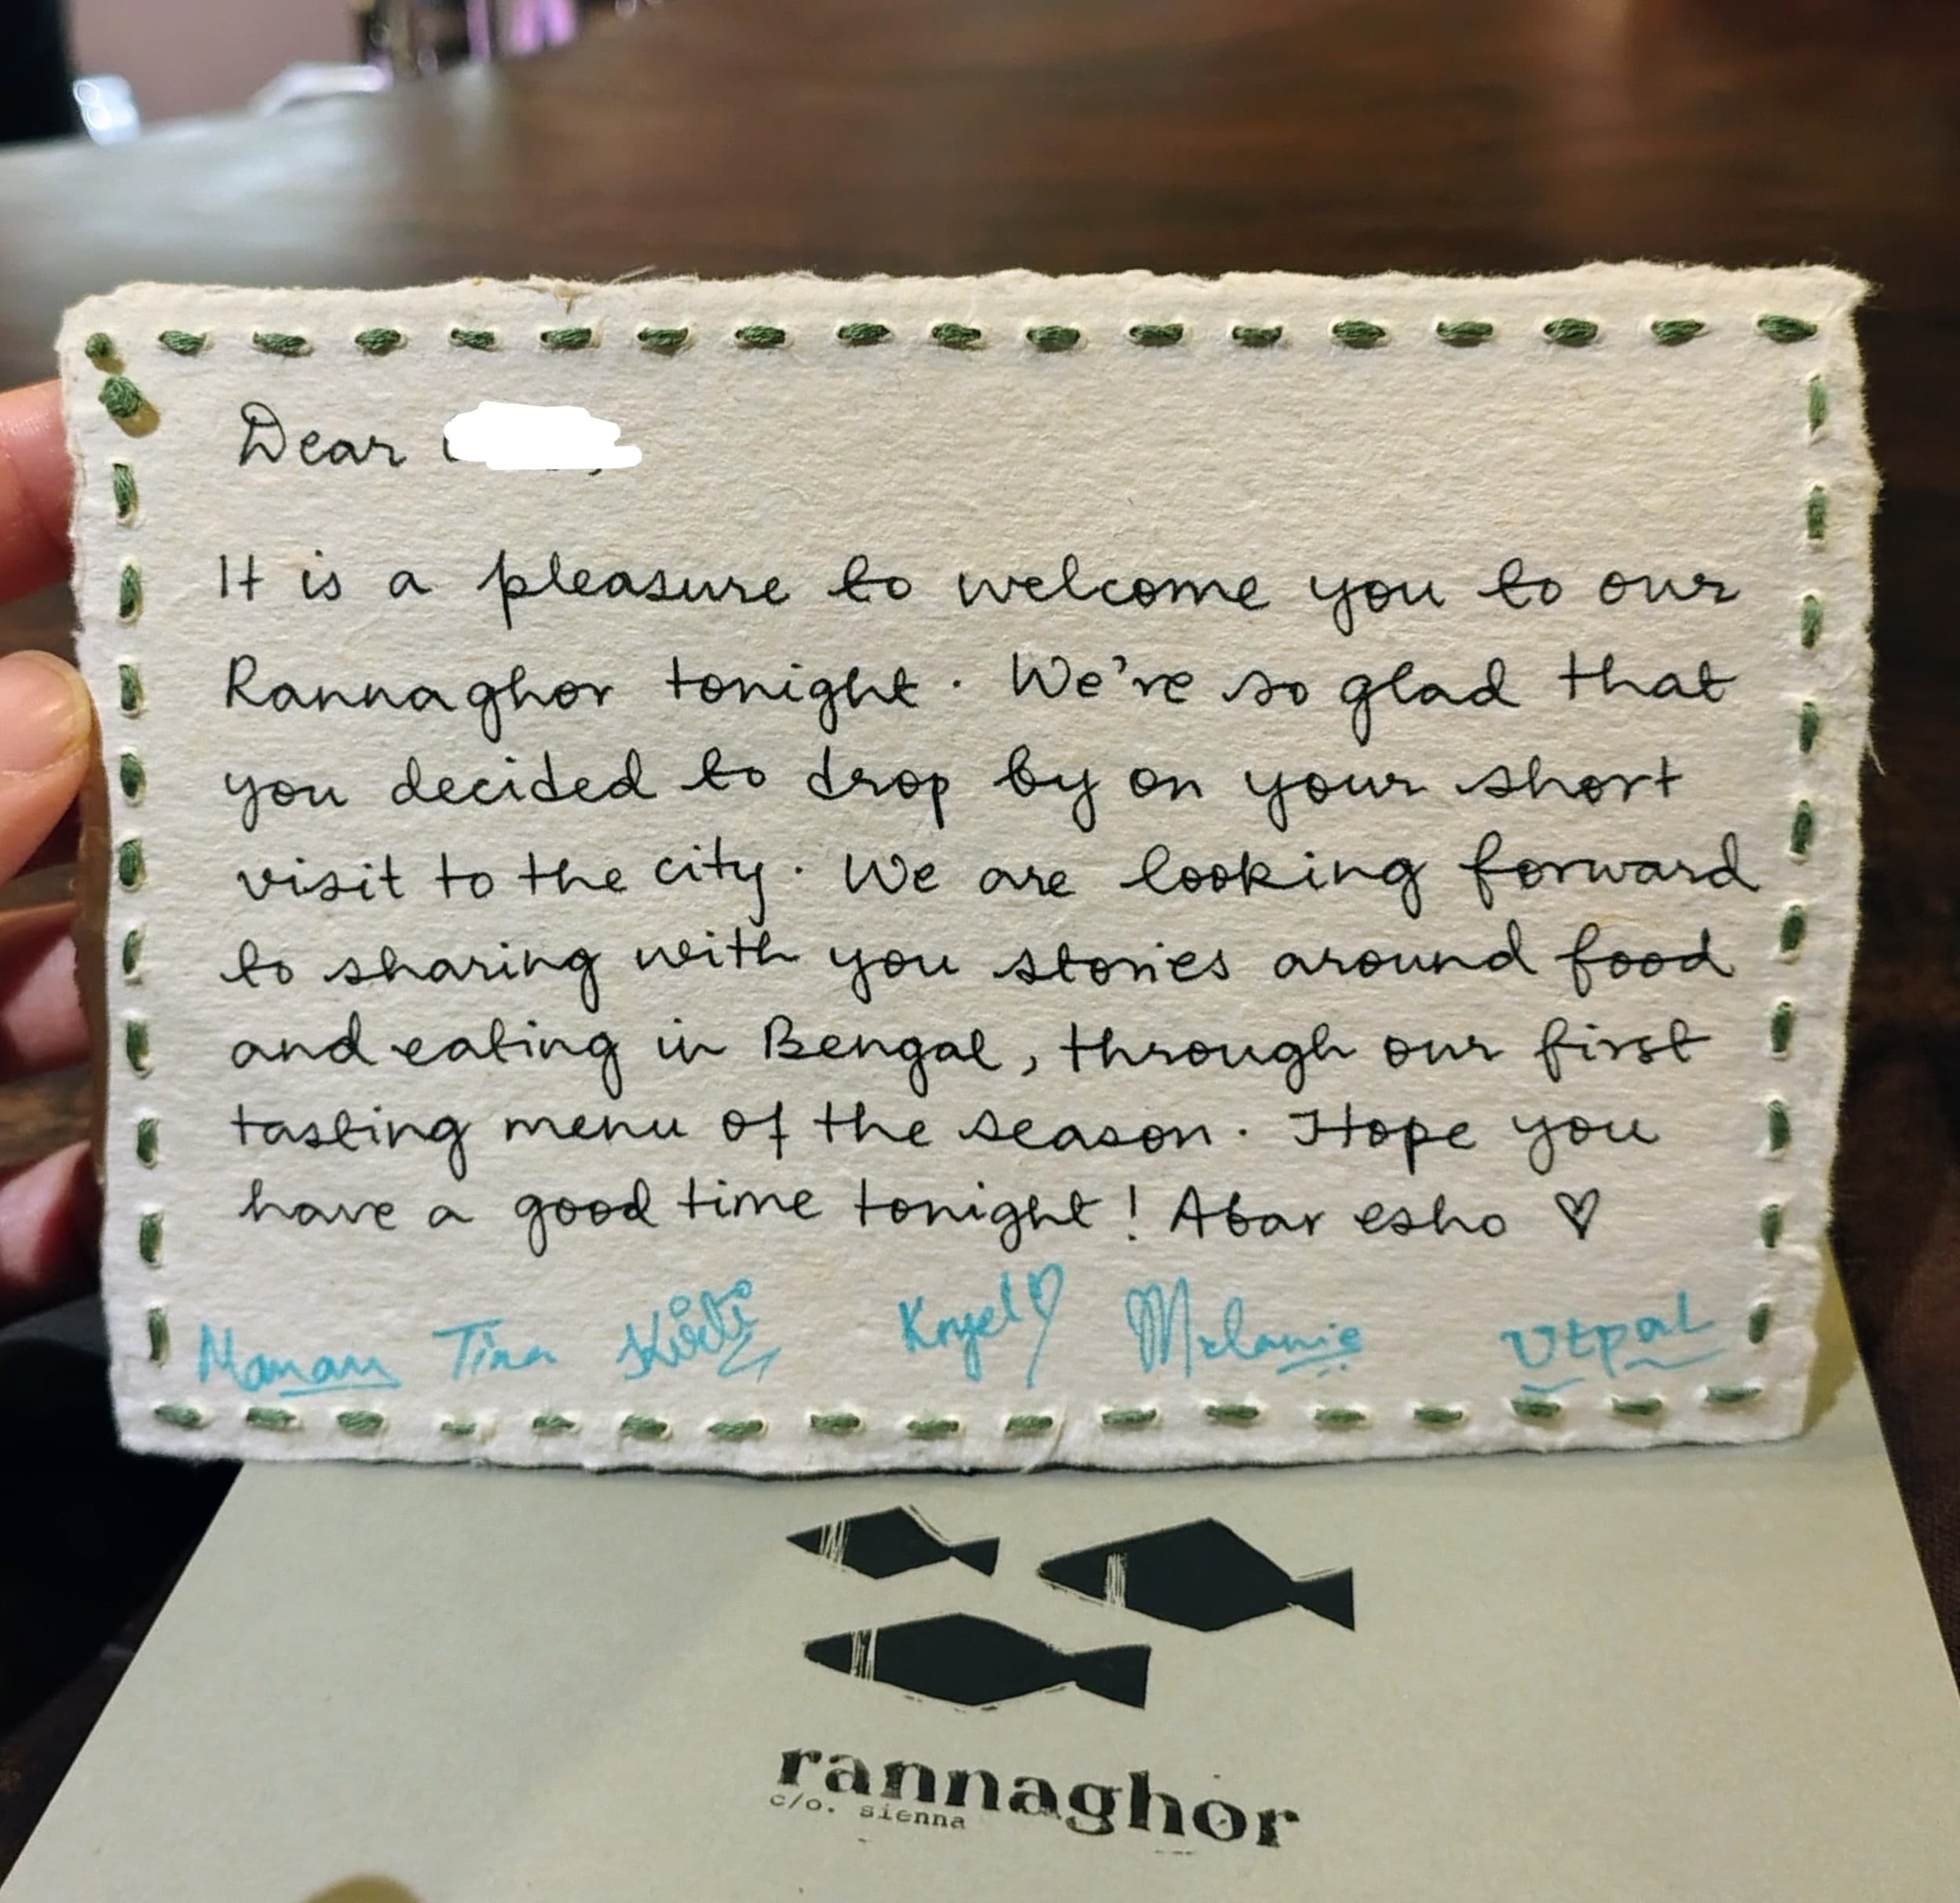 Dear
It is a pleasure to welcome you to our
Rannaghor tonight. We're so glad that
you decided to drop by on your short
visit to the city. We are looking forward
to sharing with you stories around food
and eating in Bengal, through our first
tasting menu of the season. Hope you
have a good time tonight! Abar esho ♡
Manan Tina Melanie Utpal
rannaghor
c/o. sienna